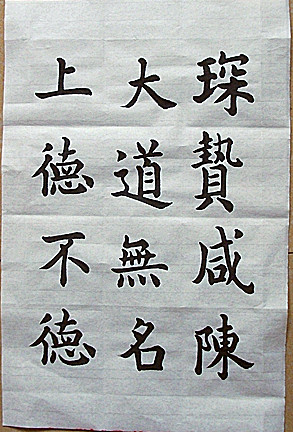 琛贄咸陳
大道無名
上德不德